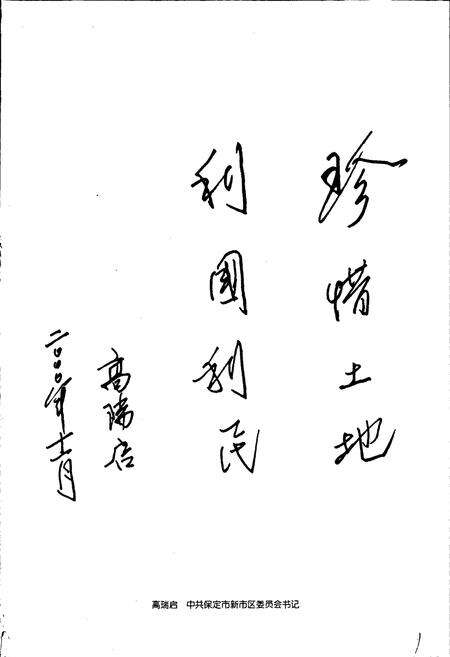 珍惜土地
利國利民
高瑞启
二〇〇〇年十二月
高瑞启 中共保定市新市区委员会书记